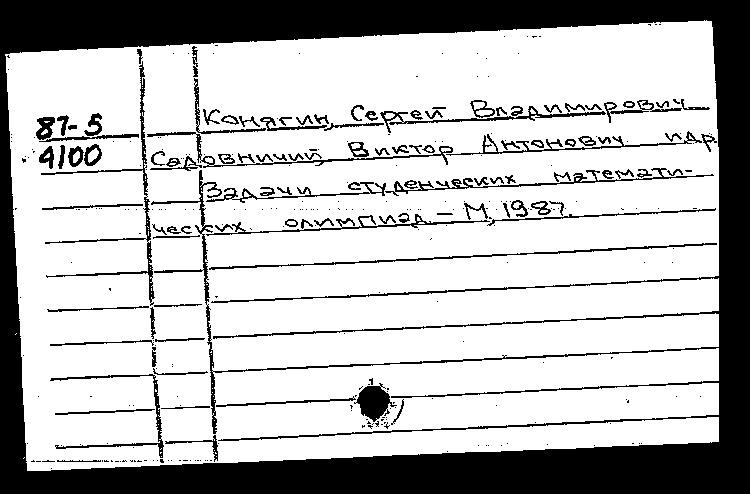 87-5 Конягин, Сергей Владимирович
4100 Садовничий, Виктор Антонович и др.
Задачи студенческих математи-
ческих олимпиад. – М, 1987.